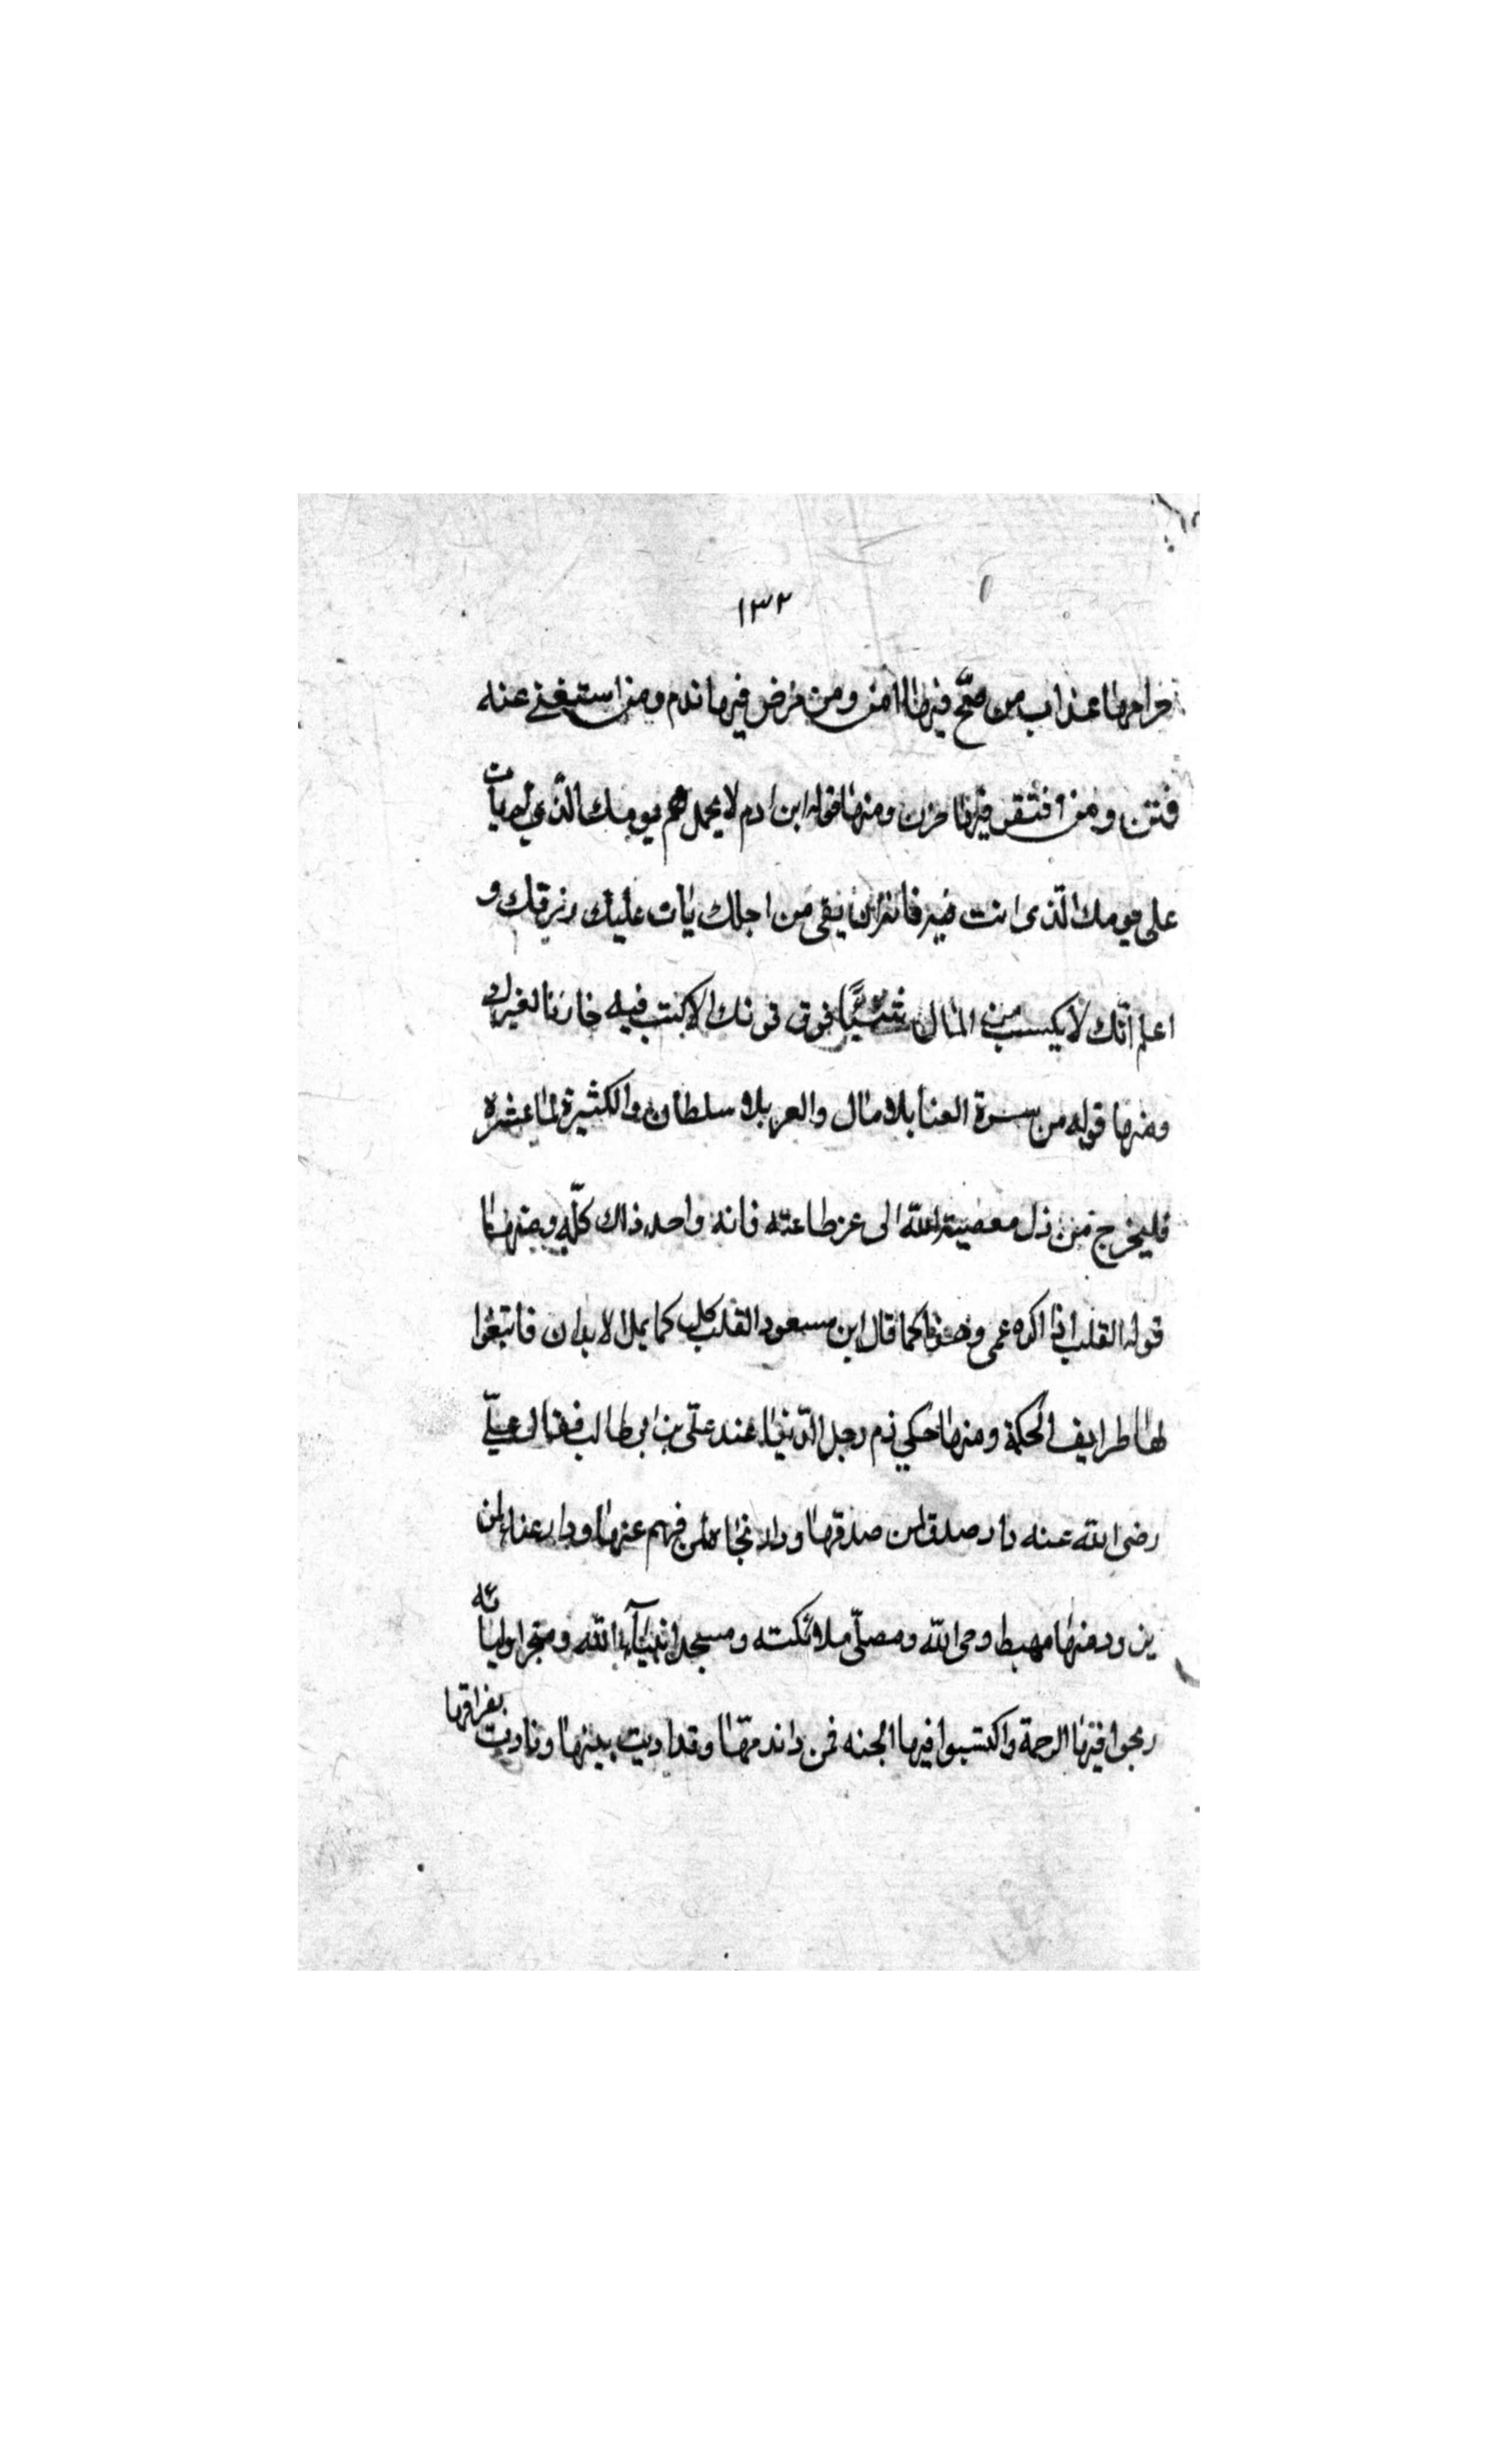 ١٣٢
حرامها عذاب من صحّ فيها امن ومن مرض فيها ندم ومن استغنى عنه
فتن ومن افتقر فيها حزن ومنها قوله ابن ادم لا يحمل هم يومك الذي لم يات
على يومك الّذى انت فيه فانه ان يبقى من اجلك يات عليك رزقك و
اعلم انّك لا يكسب من المال شيئًا فوق قوتك الا كنت فيه خازنا لغيرك
ومنها قوله من سره الغنا بلا مال والعز بلا سلطان والكثيرة بلا عشيره
فليخرج من ذل معصية الله الى عز طاعته فانه واجد ذلك كلّه ومنها
قوله القلب اذا اكره عمى وهذا كما قال ابن مسعود القلب يمل كما يمل الابدان فابتغوا
لها طرايف الحكمة ومنها حكي ذم رجل الدّنيا عند علّى بن ابى طالب فقال علىّ
رضى الله عنه دار صدق لمن صدقها ودار نجاة لمن فهم عنها ودار غناء لمن
تزود منها مهبط وحى الله ومصلّى ملائكته ومسجد انبيآء الله ومتجر اوليائه
ربحوا فيها الرحمة واكتسبوا فيها الجنه فمن ذا يذمّها وقد اذنت ببينها ونادت بفراقها